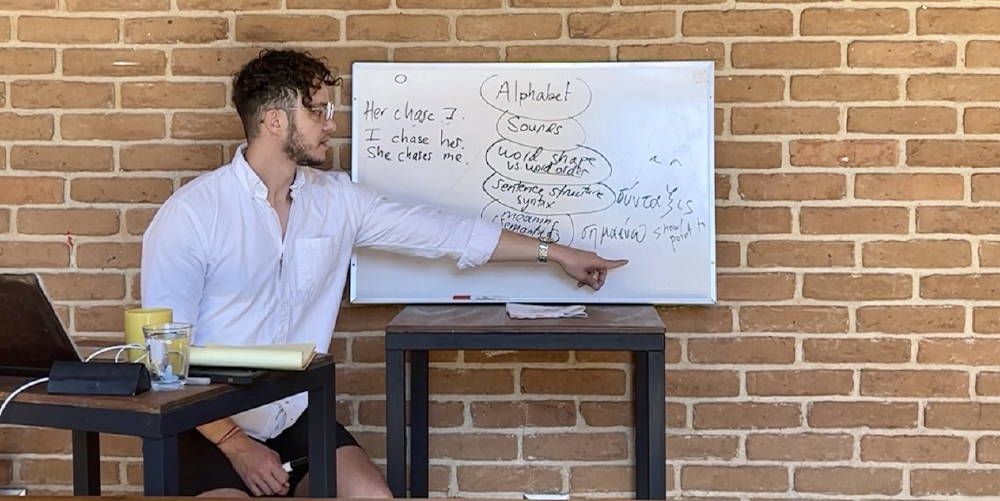 Her chase I.
I chase her.
She chases me.
Alphabet
Sounds
word shape
vs word order
sentence structure
syntax
σύνταξις
meaning
semantics
σημαίνω
show
point to